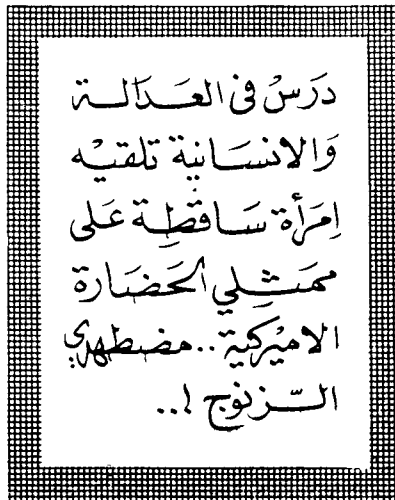 دَرَسْ في العَدَالة
وَالانسَانية تلقيه
اِمرَأة سَاقطِة عَلى
ممثِلي الحَضَارة
الاميْركية..مضطهدي
الزنوج !..